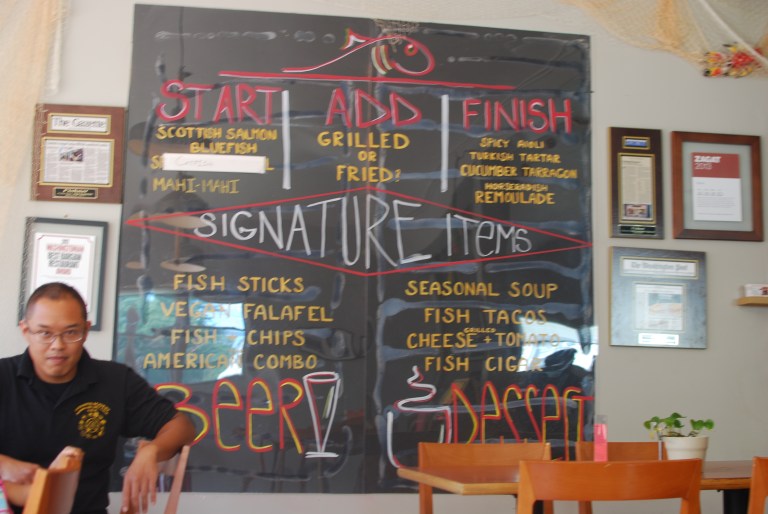 START
SCOTTISH SALMON
BLUEFISH
MAHI-MAHI
ADD
GRILLED
OR
FRIED?
FINISH
SPICY AIOLI
TURKISH TARTAR
CUCUMBER TARRAGON
HORSERADISH
REMOULADE
SIGNATURE ITEMS
FISH STICKS
VEGAN FALAFEL
FISH + CHIPS
AMERICAN COMBO
SEASONAL SOUP
FISH TACOS
GRILLED
CHEESE + TOMATO
FISH CIGAR
BEER
DESSERT
The Gazette
WASHINGTONIAN
BEST BARGAIN
RESTAURANT
AWARD
ZAGAT
2013
The Washington Post